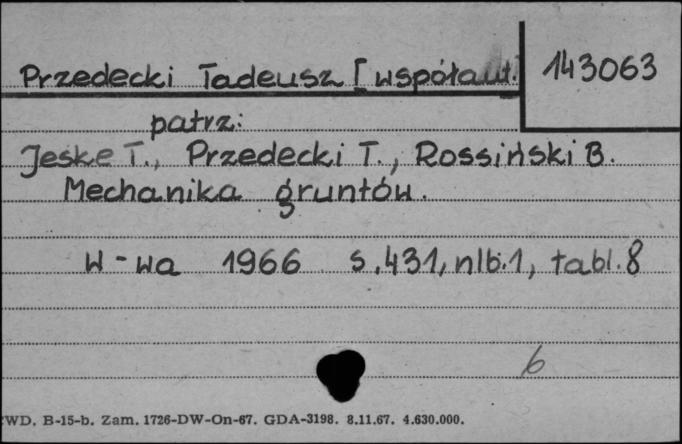 Przedecki Tadeusz [współaut.
143063
patrz:
Jeske T., Przedecki T., Rossiński B.
Mechanika gruntów.
W-wa 1966 s.431, nlb.1, tabl.8
6
WD. B-15-b. Zam. 1726-DW-On-67. GDA-3198. 8.11.67. 4.630.000.